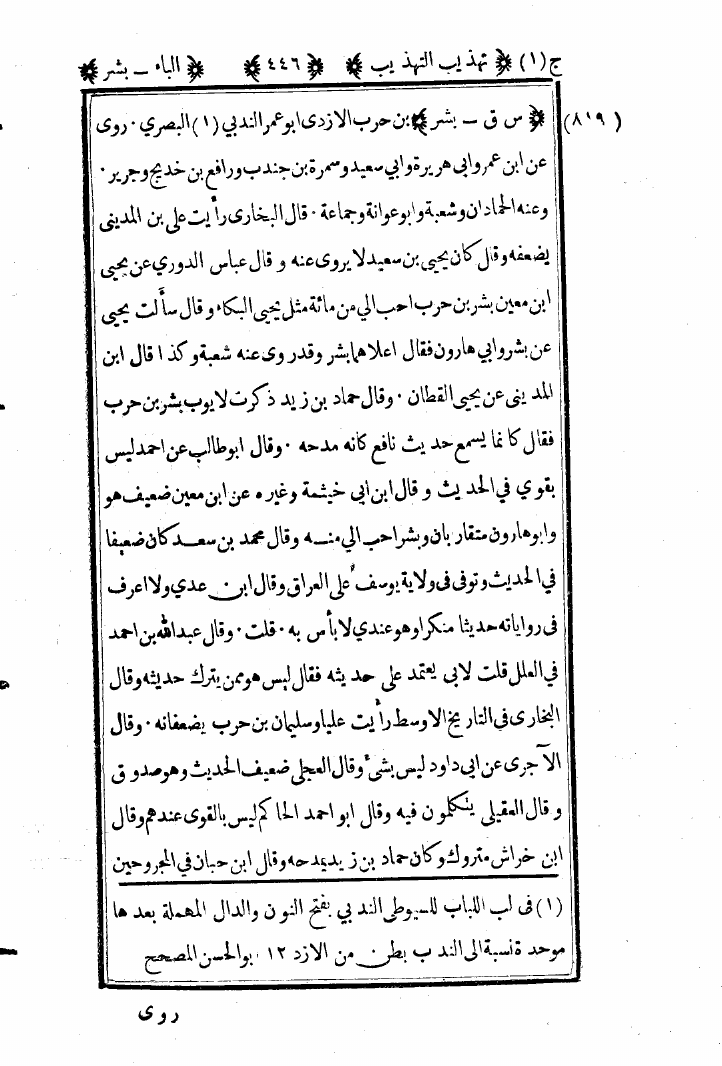 ج(١) ﴿ تهذيب التهذيب ﴾ ﴿ ٤٤٦ ﴾ ﴿ الباء ـ بشر ﴾
(٨١٩) ﴿ س ق ـ بشر ﴾ بن حرب الازدى ابو عمر الندبي (١) البصري ٠ روى
عن ابن عمر وابى هريرة وابي سعيد وسمرة بن جندب ورافع بن خديج وجرير ٠
وعنه الحمادان وشعبة وابو عوانة وجماعة ٠ قال البخارى رأيت على بن المدينى
يضعفه وقال كان يحيى بن سعيد لا يروى عنه وقال عباس الدوري عن يحيى
ابن معين بشر بن حرب احب الي من مائة مثل يحيى البكاء وقال سألت يحيى
عن بشر وابي هارون فقال اعلاهما بشر وقد روى عنه شعبة وكذا قال ابن
المدينى عن يحيى القطان ٠ وقال حماد بن زيد ذكرت لايوب بشر بن حرب
فقال كانما يسمع حديث نافع كانه مدحه ٠ وقال ابو طالب عن احمد ليس
بقوي في الحديث وقال ابن ابى خيثمة وغيره عن ابن معين ضعيف هو
وابو هارون متقاربان وبشر احب الي منه وقال محمد بن سعد كان ضعيفا
في الحديث وتوفى فى ولاية يوسف على العراق وقال ابن عدي ولا اعرف
فى رواياته حديثا منكرا وهو عندي لا بأس به ٠ قلت ٠ وقال عبدالله بن احمد
في العلل قلت لابى يعتمد على حديثه فقال ليس هو ممن يترك حديثه وقال
البخارى فى التاريخ الاوسط رأيت عليا وسليمان بن حرب يضعفانه ٠ وقال
الآجرى عن ابى داود ليس بشئ وقال العجلى ضعيف الحديث وهو صدوق
وقال العقيلى يتكلمون فيه وقال ابو احمد الحاكم ليس بالقوى عندهم وقال
ابن خراش متروك وكان حماد بن زيد يمدحه وقال ابن حبان في المجروحين
(١) فى لب اللباب للسيوطى الندبي بفتح النون والدال المهملة بعدها
موحدة نسبة الى الندب بطن من الازد ١٢ ابو الحسن المصحح
روى